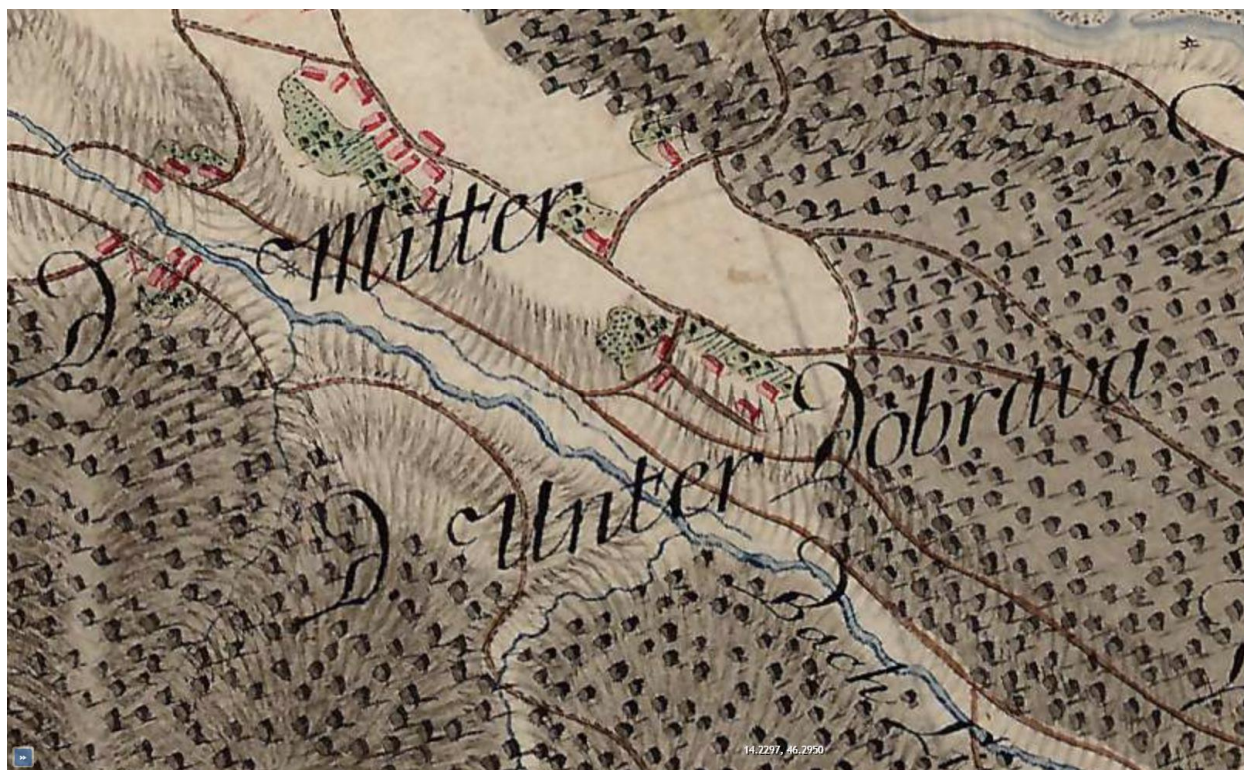 D. Mitter
D. Unter Dobrava
Bach
14.2297, 46.2950